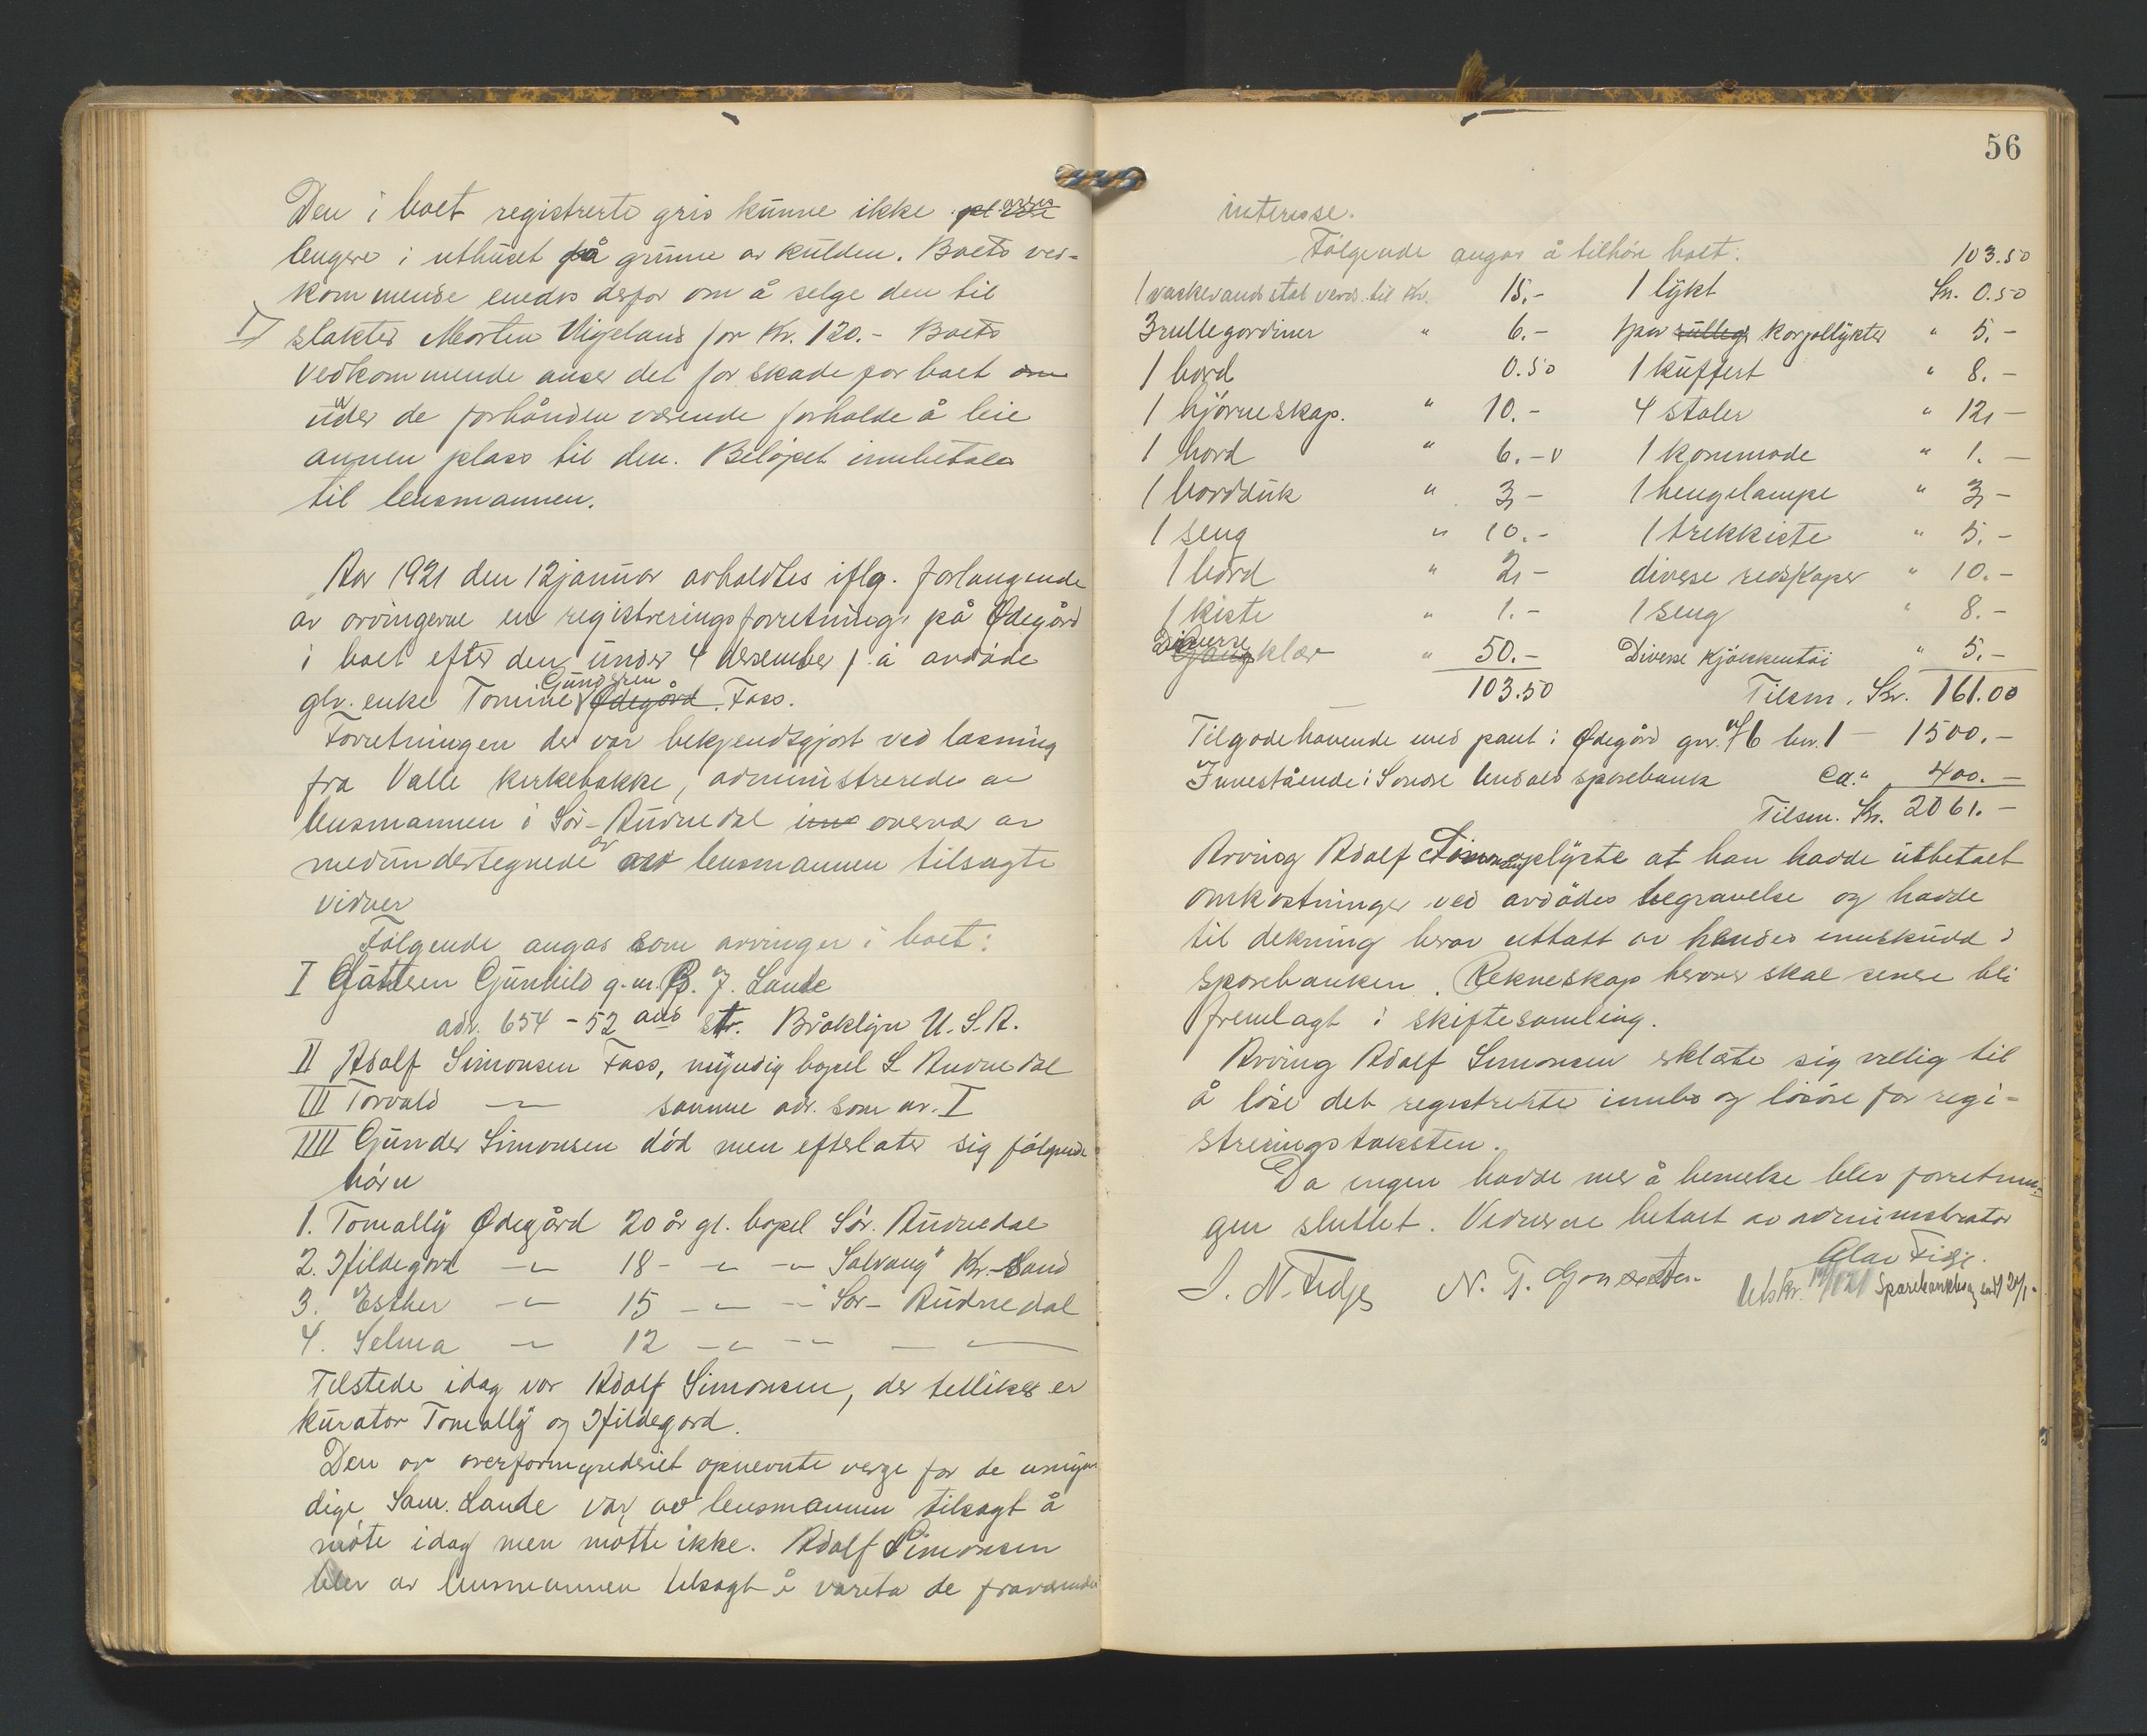 Den i boet registrerte gris kunne ikke
lengere i uthuset på grunn av kulden. Boets ved-
kommende enedes derfor om å selge den til
slakter Morten Vigeland for Kr. 120.- Boets
vedkommende anser det for skade for boet om
under de forhånden værende forholde å leie
annen plass til den. Beløpet innbetales
til lensmannen.
Aar 1921 den 12 januar avholdtes iflg. forlangende
av arvingerne en registreringsforretning på Ødegård
i boet efter den under 4 desember f.å avdøde
Gundersen
glv. enke Tomine Ødegård. Foss.
Forretningen der var bekjendtgjort ved læsning
fra Valle kirkebakke, administreredes av
lensmannen i Sör-Audnedal overvær av
medundertegnede av lensmannen tilsagte
vidner
Følgende angas som arvinger i boet:
I Gunhild g.m. B. J. Lande
adr. 654 - 52 and str. Bråoklyn U.S.A.
II Adolf Simonsen Foss, myndig bopel S Audnedal
III Torvald —"— samme adr. som nr. I
IIII Gunder Simonsen död men efterlater sig fölgende
börn
1. Tomally Ødegård 20 år gl. bopel Sör. Audnedal
2. Hildegard —"— 18 - —"— —"— Solvang" Kr.-Sand
3. Esther —"— 15 —"— —"— Sör-Audnedal
4. Selma —"— 12 —"— —"— —"—
Tilstede idag var Adolf Simonsen, der tillikes er
kurator Tomally og Hildegard.
Den av overformynderiet opnevnte verge for de umyn
dige, Sam. Lande var av lensmannen tilsagt å
möte idag men mötte ikke. Adolf Simonsen
blev av lensmannen tilsagt å vareta de fraværendes
56
interesse.
Følgende angas å tilhöre boet:
103.50
1 vaskevandstol verd. til Kr. 15.- 1 lykt Kr. 0.50
3 rullegardiner " 6.- 1 par rulleg. karjollykter " 5.-
1 bord 0.50 1 kuffert " 8.-
1 hjörneskap. " 10.- 4 stoler " 12,-
1 bord " 6.- v 1 kommode " 1.-
1 bordduk " 3,- 1 hengelampe " 3,-
1 seng " 10.- 1 trekkiste " 5.-
1 bord " 2,- diverse redskaper " 10.-
1 kiste " 1.- 1 seng " 8.-
Diverse
klær " 50.- Diverse Kjökkentöi " 5.-
103.50 Tilsm. Kr. 161.00
Tilgodehavende med pant i Ødegård gnr. 46 bnr. 1 — 1500.-
Innestående i Söndre Undals sparebank ca. " 400.-
Tilsm. Kr. 2061.-
Arving Adolf Simonsen oplyste at han hadde utbetalt
omkostninger ved avdödes begravelse og hadde
til dekning herav uttatt av hendes innskudd i
sparebanken. Rekneskap herover skal senere bli
fremlagt i skiftesamling.
Arving Adolf Simonsen erklæte sig villig til
å löse det registrerte innbo og lösöre for regi-
streringstaksten.
Da ingen hadde mer å bemerke blev forretnin-
gen sluttet. Vidnerne betalt av administrator
Olav Fidje.
S. N. Fidje N. T.
Utskr. Sparebankbog